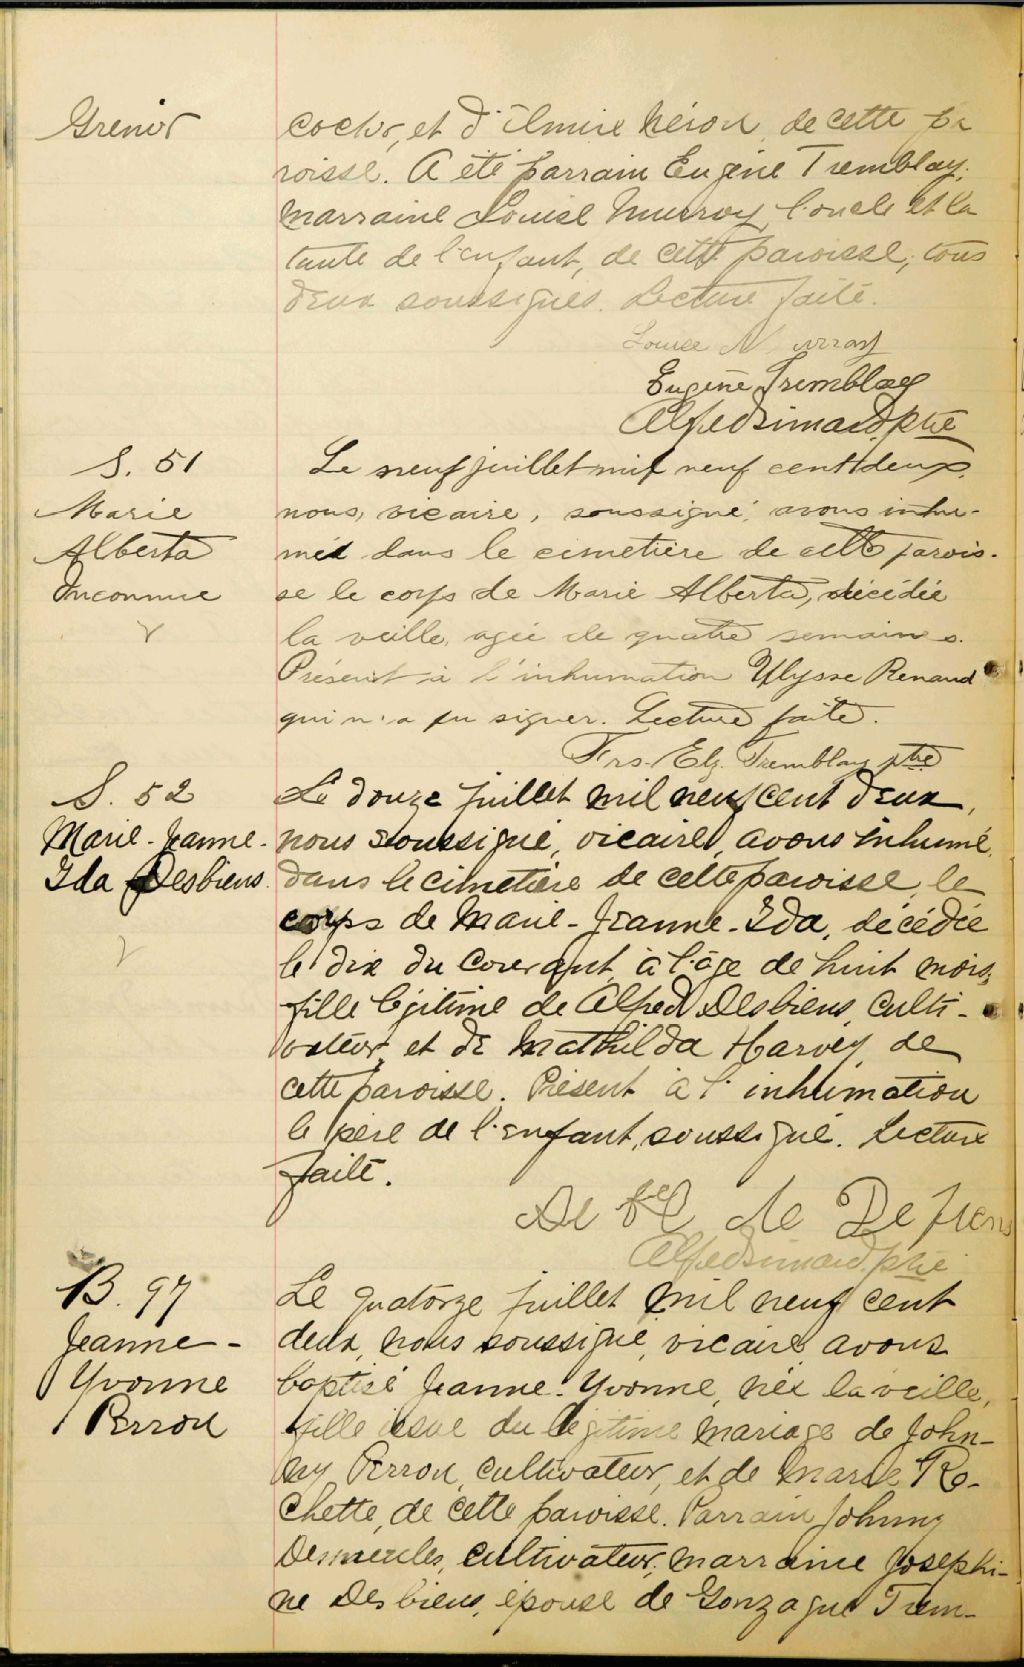 Grenir
cocher, et d'Elmire Néron, de cette pa
roisse. A été parrain Eugène Tremblay,
marraine Louise Murray, l'oncle et la
tante de l'enfant, de cette paroisse, tous
deux soussignés. Lecture faite.
Louise Murray
Eugène Tremblay
Alfed Simard, ptre
S. 51
Marie
Alberta
Inconnue
Le neuf juillet mil neuf cent deux,
nous, vicaire, soussigné, avons inhu-
mé dans le cimetière de cette parois-
se le corps de Marie Alberta, décédée
la veille, agée de quatre semaines.
Présent à l'inhumation Ulysse Renaud
qui n'a pu signer. Lecture faite.
Frs. Elz. Tremblay ptre
S. 52
Marie-Jeanne-
Ida Desbiens
Le douze juillet mil neuf cent deux,
nous soussigné, vicaire, avons inhumé,
dans le cimetière de cette paroisse, le
corps de Marie-Jeanne-Ida, décédée
le dix du courant, à l'âge de huit mois,
fille légitime de Alfred Desbiens, culti-
vateur, et de Mathilda Harvey, de
cette paroisse. Présent à l'inhumation
le père de l'enfant, soussigné. Lecture
faite.
Alfed Simard, ptre
B. 97
Jeanne-
Yvonne
Perron
Le quatorze juillet mil neuf cent
deux, nous soussigné, vicaire, avons
baptisé Jeanne-Yvonne, née la veille,
fille issue du légitime mariage de John-
ny Perron, cultivateur, et de Marie Ro-
chette, de cette paroisse. Parrain Johnny
Desmeules, cultivateur, marraine Joséphi-
ne Desbiens, épouse de Gonzague Trem-